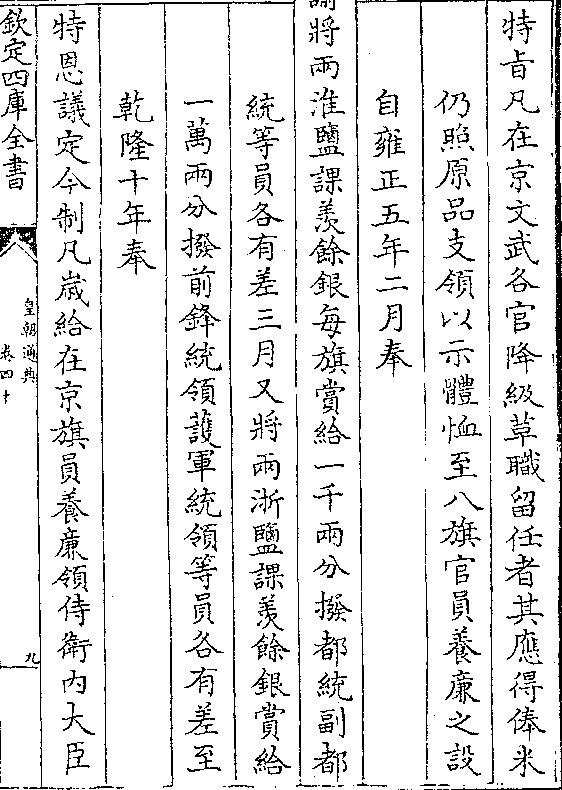 特旨凡在京文武各官降級革職留任者其應得俸米
仍照原品支領以示體恤至八旗官員養廉之設
自雍正五年二月奉
諭將兩淮鹽課羨餘銀每旗賞給一千兩分撥都統副都
統等員各有差三月又將兩浙鹽課羨餘銀賞給
一萬兩分撥前鋒統領護軍統領等員各有差至
乾隆十年奉
特恩議定今制凡歲給在京旗員養廉領侍衛内大臣
欽定四庫全書
皇朝通典
卷四十
九